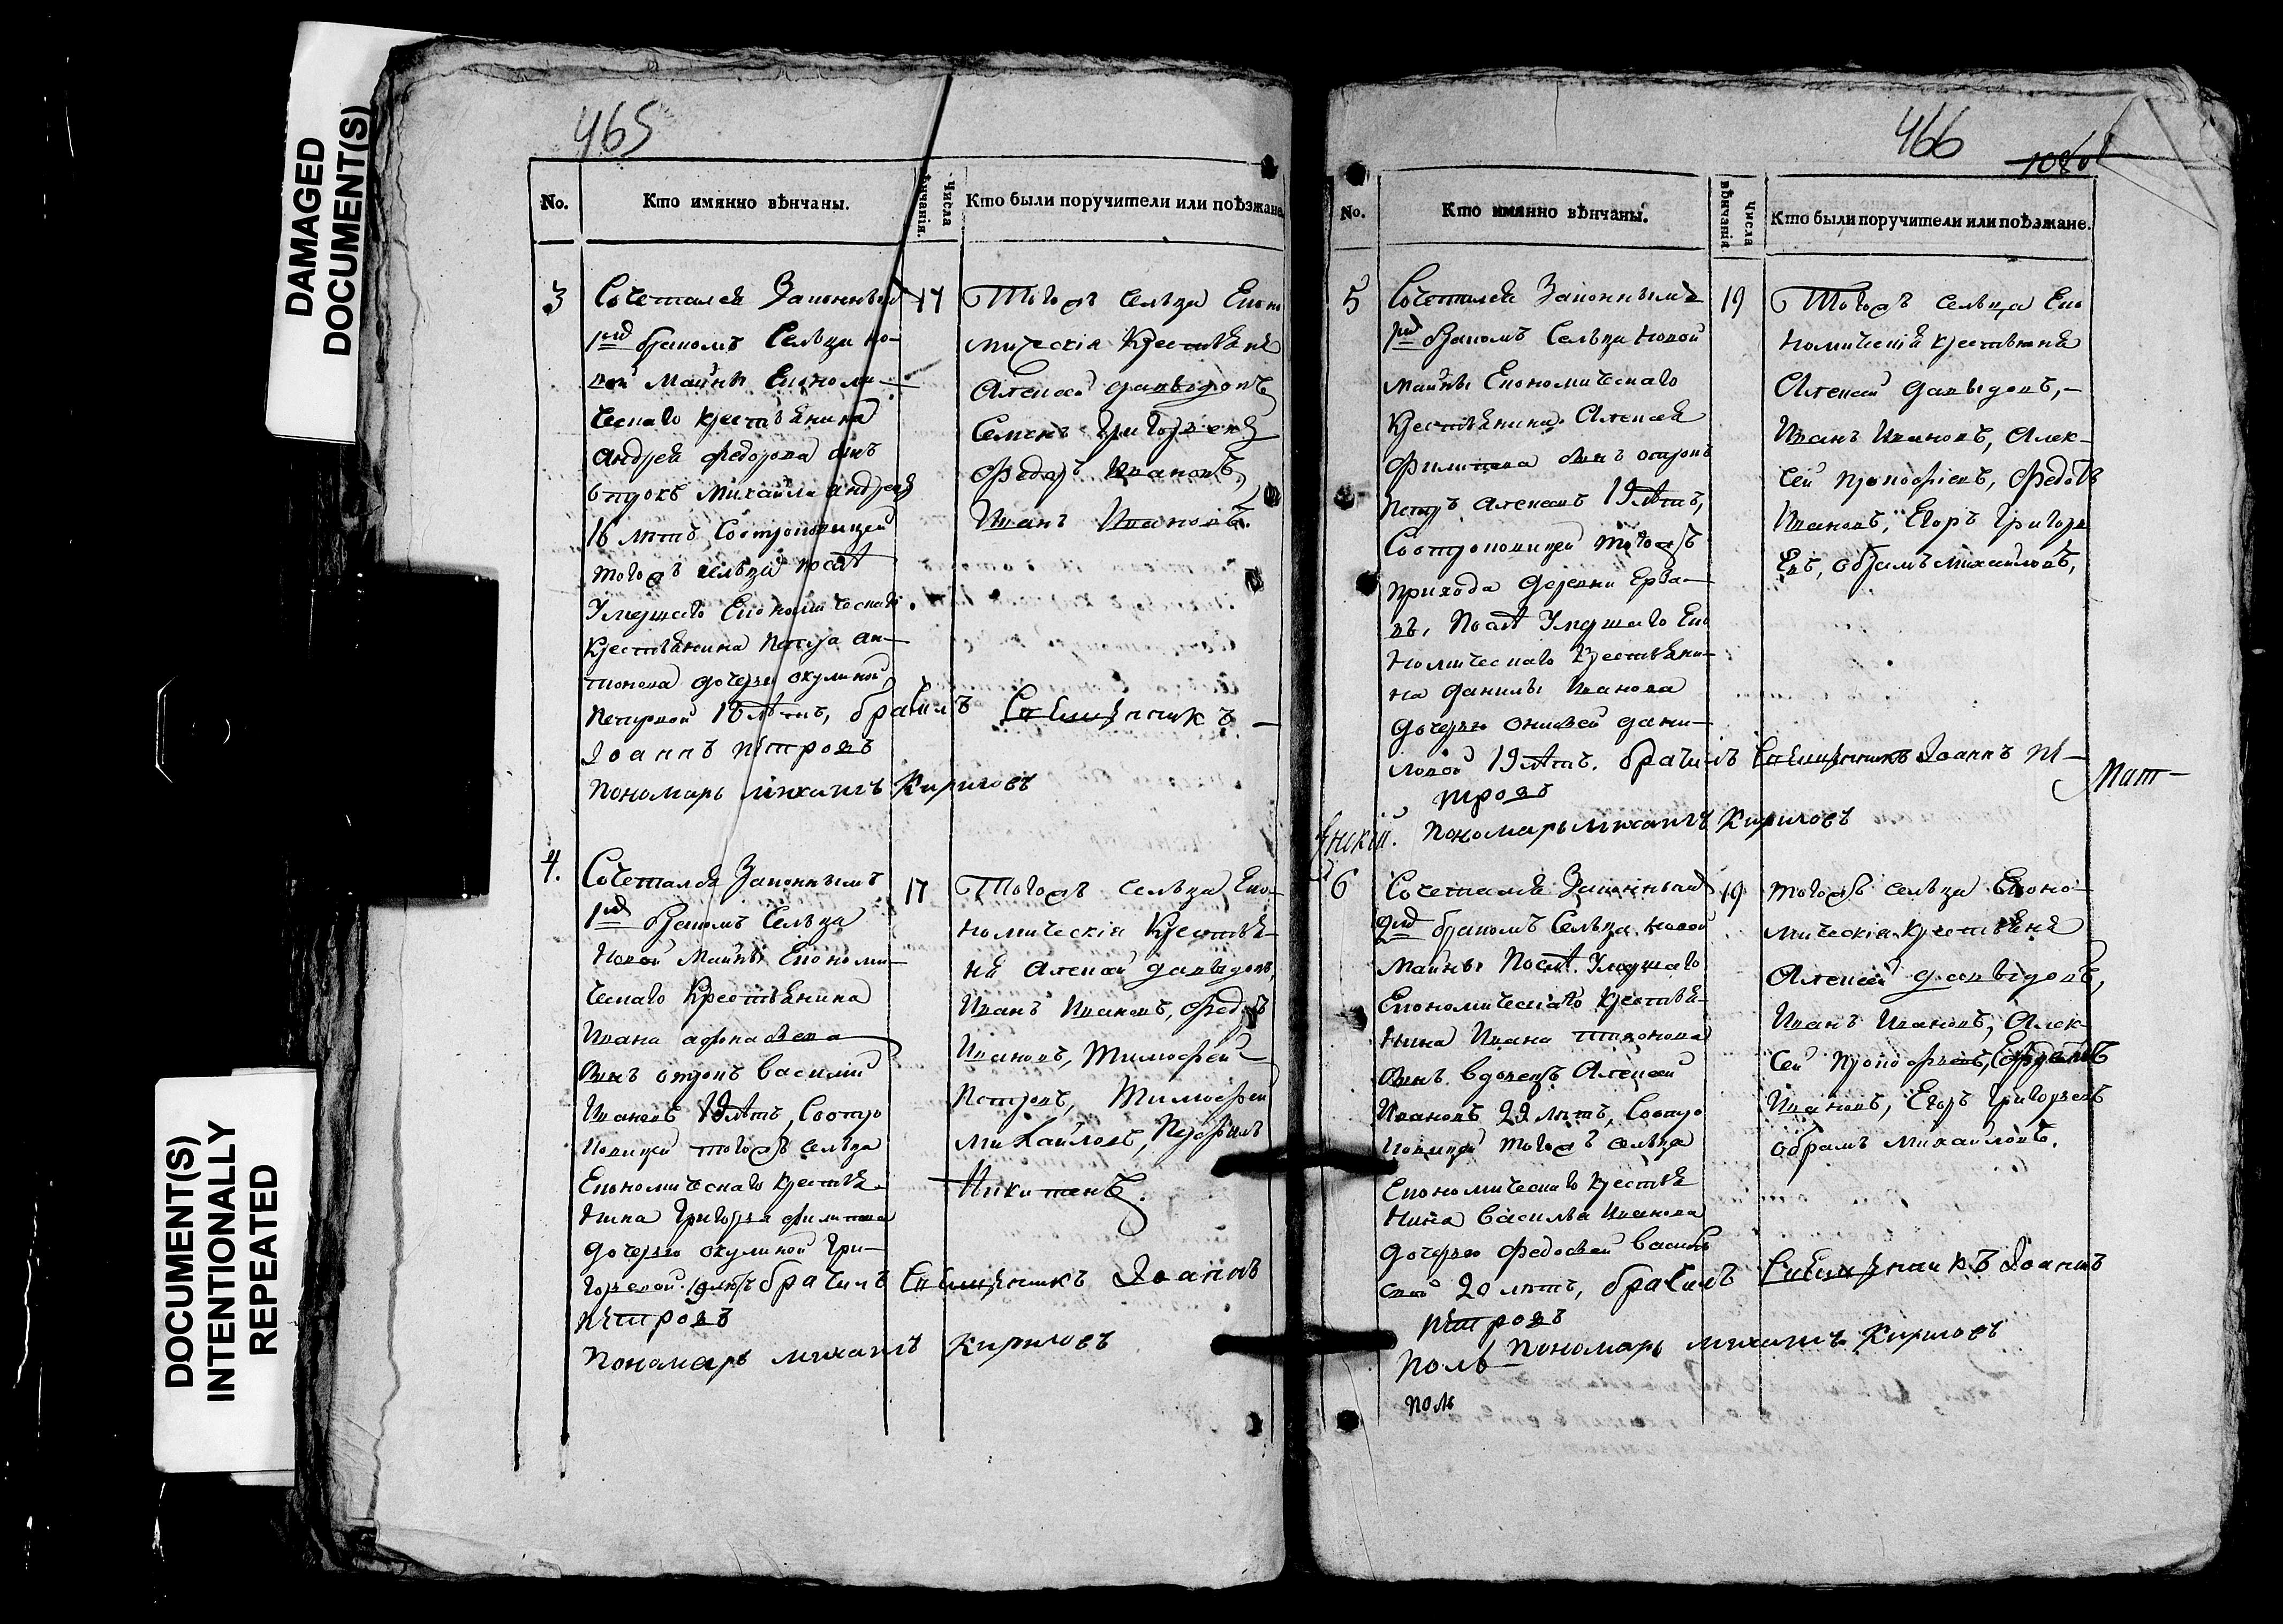 DAMAGED
DOCUMENT(S)
DOCUMENT(S)
INTENTIONALLY
REPEATED
465
No.
Кто имянно вѣнчаны.
Числа вѣнчанія.
Кто были поручители или поѣзжане.
3
Сочетался Законнымъ
1мъ бракомъ Сельца но-
вой Майны Економи-
ческаго крестьянина
Андрея Федорова сынъ
отрокъ Михайла андреевъ
16 лѣтъ Соотроковицей
тогожъ сельца послѣ
Умершаго Економическаго
Крестьянина Петра ан-
тонова дочерью окулиной
Петровой 18 лѣтъ, брачилъ Священникъ
Іоаннъ Петровъ
Пономарь михаилъ Кириловъ
17
Тогожъ сельца Еконо
мическія Крестьяня
Алексей давыдовъ
Семенъ Григорьевъ
Федоръ Ивановъ,
Иванъ Ивановъ.
4.
Сочетался Законнымъ
1мъ бракомъ Сельца
Новой Майны Економи-
ческаго Крестьянина
Ивана афонасьева
сынъ отрокъ Василий
Ивановъ 19 лѣтъ, Соотро
ковицей тогожъ сельца
Економическаго крестья-
нина Григорья филипова
дочерью окулиной Гри-
горьевой 19 лѣтъ брачилъ Священникъ Іоаннъ
Петровъ
Пономарь михаилъ Кириловъ
17
Тогожъ сельца Еко-
номическія Крестья-
ня Алексей давыдовъ,
Иванъ Ивановъ, Федоръ
Ивановъ, Тимофей
Петровъ, Тимофей
Михайловъ, Профилъ
Никитинъ.
466
1080
No.
Кто имянно вѣнчаны.
Числа вѣнчанія.
Кто были поручители или поѣзжане.
5
Сочетался Законнымъ
1мъ бракомъ Сельца Новой
майны Економическаго
Крестьянина Алексея
Филипова сынъ отрокъ
Петръ Алексеевъ 19 лѣтъ,
Соотроковицей тогожъ
прихода деревни Ерза-
въ, Послѣ Умершаго Еко
номическаго Крестьяни-
на данилы Иванова
дочерью Анисьей дани-
ловой 19 лѣтъ. брачилъ Священникъ Іоаннъ Пе-
тровъ
Пономарь михаилъ Кириловъ
19
Тогожъ сельца Еко
номическія крестьяня
Алексей давыдовъ,-
Иванъ Ивановъ, Алек-
сей Прокофіевъ, Федотъ
Ивановъ, Егоръ Григорь
евъ, Абрамъ Михайловъ,
Мат-
6
Сочетался Законнымъ
2мъ бракомъ Сельца новой
майны Послѣ Умершаго
Економическаго крестья-
нина Ивана
сынъ вдовецъ Алексей
Ивановъ 22 лѣтъ, Соотро
ковицей тогожъ сельца
Економическаго крестья
нина Василья Иванова
дочерью Федосьей Василь
евой 20 лѣтъ, брачилъ Священникъ Іоаннъ
Петровъ
Пономарь михаилъ Кириловъ
Поль
поль
19
тогожъ сельца Еконо-
мическія крестьяня
Алексей давыдовъ,
Иванъ Ивановъ, Алек-
сей Прокофьевъ,
Ивановъ, Егоръ Григорьевъ
Абрамъ Михайловъ.